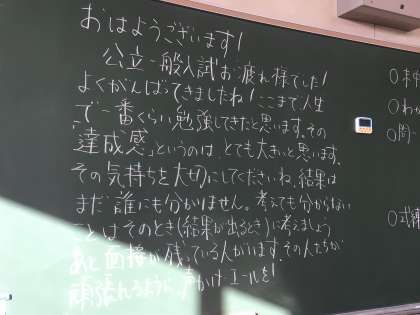 おはようございます!
公立一般入試お疲れ様でした!
よくがんばってきましたね!ここまで人生
で一番くらい勉強してきたと思います。その
「達成感」というのは、とても大きいと思います。
その気持ちを大切にしてくださいね。結果は
まだ誰にも分かりません。考えても分からない
ことはそのとき(結果が出るとき)に考えましょう
あと面接が残っている人がいます。その人たちが
頑張れるように声かけ・エールを!
○
○わ
○
○式